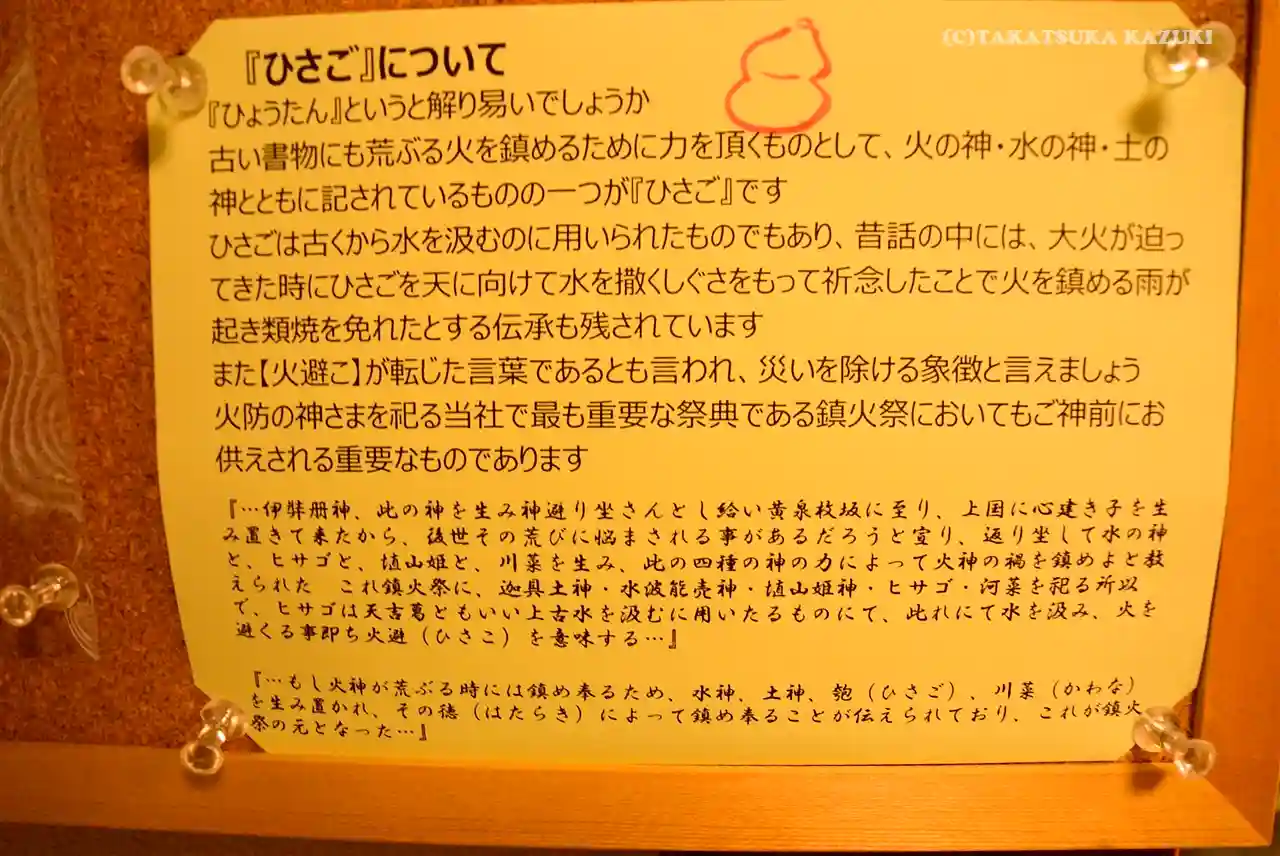 (C)TAKATSUKA KAZUKI
『ひさご』について
『ひょうたん』というと解り易いでしょうか
古い書物にも荒ぶる火を鎮めるために力を頂くものとして、火の神・水の神・土の
神とともに記されているものの一つが『ひさご』です
ひさごは古くから水を汲むのに用いられたものでもあり、昔話の中には、大火が迫っ
てきた時にひさごを天に向けて水を撒くしぐさをもって祈念したことで火を鎮める雨が
起き類焼を免れたとする伝承も残されています
また【火避こ】が転じた言葉であるとも言われ、災いを除ける象徴と言えましょう
火防の神さまを祀る当社で最も重要な祭典である鎮火祭においてもご神前にお
供えされる重要なものであります
『…伊弉册神、此の神を生み神避り坐さんとし給い黄泉枚坂に至り、上国に心建き子を生
み置きて来たから、後世その荒びに悩まされる事があるだろうと宣り、返り坐して水の神
と、ヒサゴと、埴山姫と、川菜を生み、此の四種の神の力によって火神の禍を鎮めよと教
えられた　これ鎮火祭に、迦具土神・水波能売神・埴山姫神・ヒサゴ・河菜を祀る所以
で、ヒサゴは天吉葛ともいい上古水を汲むに用いたるものにて、此れにて水を汲み、火を
避くる事即ち火避（ひさこ）を意味する…』
『…もし火神が荒ぶる時には鎮め奉るため、水神、土神、匏（ひさご）、川菜（かわな）
を生み置かれ、その徳（はたらき）によって鎮め奉ることが伝えられており、これが鎮火
祭の元となった…』